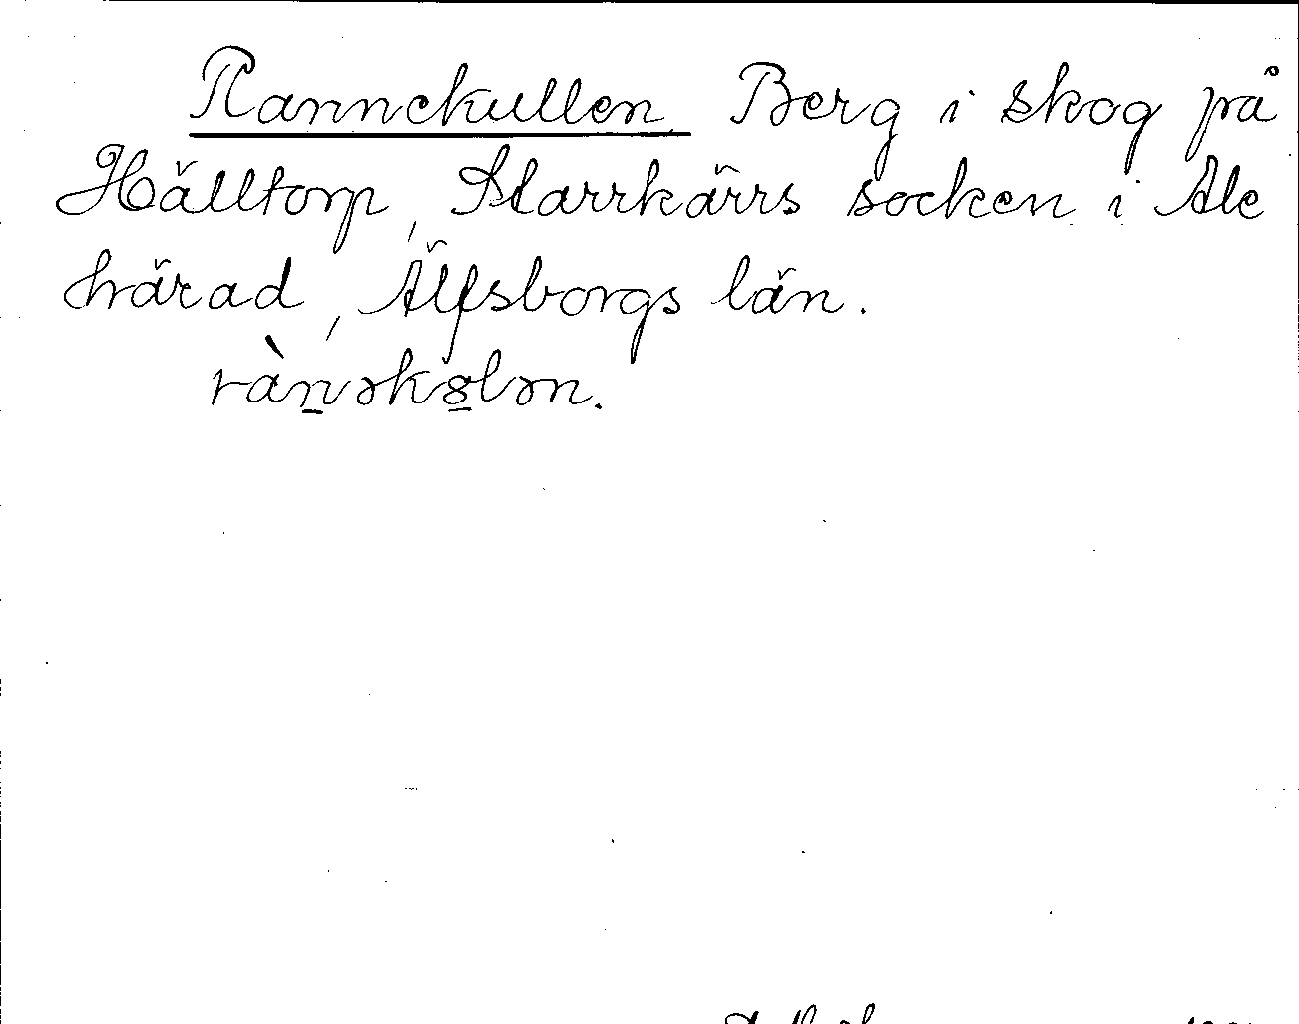 Rannekullen. Berg i skog på
Hälltorp, Starrkärrs socken i Ale
härad, Älfsborgs län.
rànəkələn.